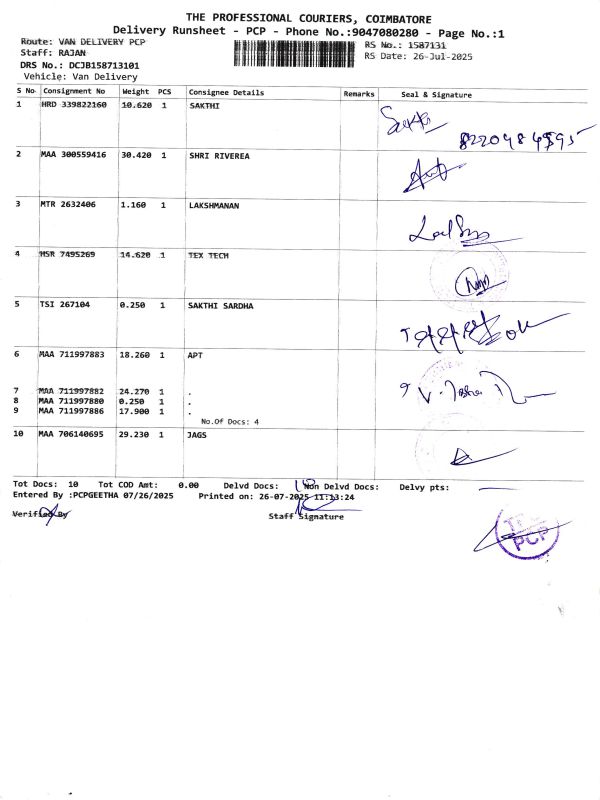 THE PROFESSIONAL COURIERS, COIMBATORE
Delivery Runsheet - PCP - Phone No.:9047080280 - Page No.:1
Route: VAN DELIVERY PCP RS No.: 1587131
Staff: RAJAN RS Date: 26-Jul-2025
DRS No.: DCJB158713101
Vehicle: Van Delivery
S No Consignment No Weight PCS Consignee Details Remarks Seal & Signature
1 HRD 339822160 10.620 1 SAKTHI
2 MAA 300559416 30.420 1 SHRI RIVEREA
3 MTR 2632406 1.160 1 LAKSHMANAN
4 MSR 7495269 14.620 1 TEX TECH
5 TSI 267104 0.250 1 SAKTHI SARDHA
6 MAA 711997883 18.260 1 APT
7 MAA 711997882 24.270 1 .
8 MAA 711997880 0.250 1 .
9 MAA 711997886 17.900 1 .
No.Of Docs: 4
10 MAA 706140695 29.230 1 JAGS
Tot Docs: 10 Tot COD Amt: 0.00 Delvd Docs: Non Delvd Docs: Delvy pts:
Entered By :PCPGEETHA 07/26/2025 Printed on: 26-07-2025 11:13:24
Verified By Staff Signature
PCP